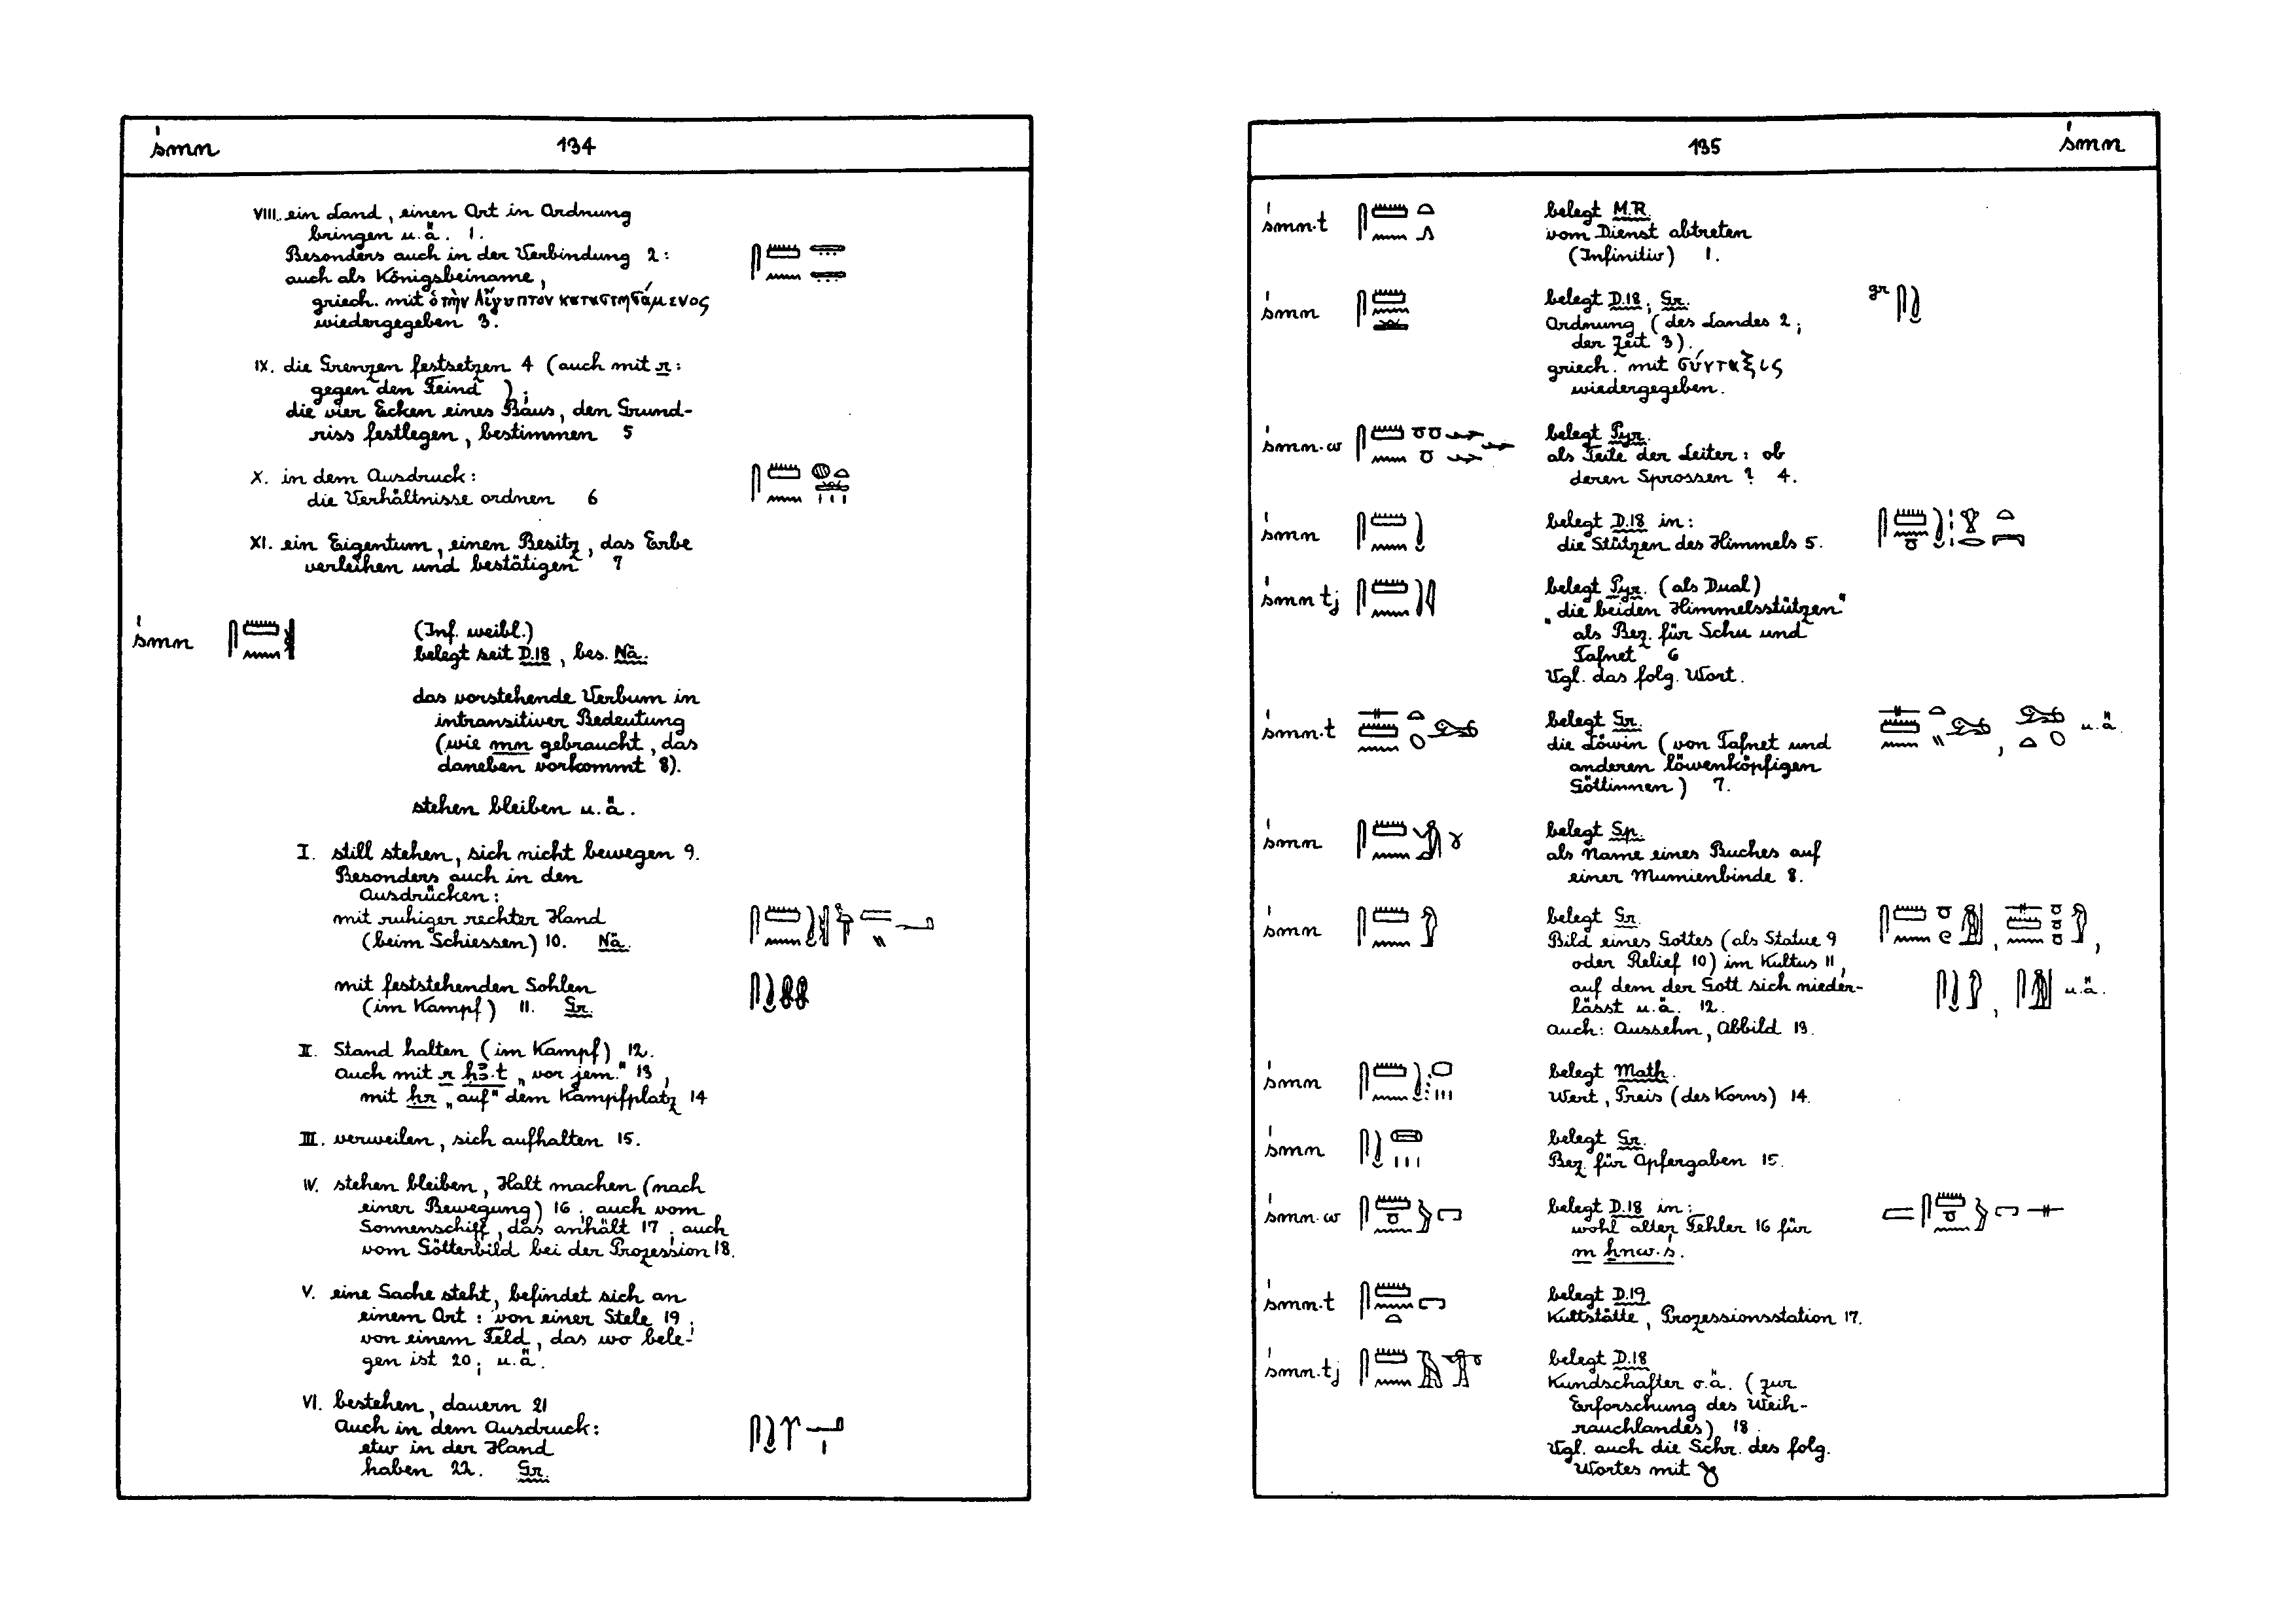 śmn 134
VIII. ein Land, einen Ort in Ordnung
bringen u.ä. 1.
Besonders auch in der Verbindung 2:
auch als Königsbeiname,
griech. mit ὁ τὴν Αἴγυπτον καταστησάμενος
wiedergegeben 3.
IX. die Grenzen festsetzen 4 (auch mit r:
gegen den Feind );
die vier Ecken eines Baus, den Grund-
riss festlegen, bestimmen 5
X. in dem Ausdruck:
die Verhältnisse ordnen 6
XI. ein Eigentum, einen Besitz, das Erbe
verleihen und bestätigen 7
śmn (Inf. weibl.)
belegt seit D.18, bes. Nä.
das vorstehende Verbum in
intransitiver Bedeutung
(wie mn gebraucht, das
daneben vorkommt 8).
stehen bleiben u.ä.
I. still stehen, sich nicht bewegen 9.
Besonders auch in den
Ausdrücken:
mit ruhiger rechter Hand
(beim Schiessen) 10. Nä.
mit feststehenden Sohlen
(im Kampf) 11. Gr.
II. Stand halten (im Kampf) 12.
auch mit r ḥꜣ.t „vor jem." 13,
mit ḥr „auf" dem Kampfplatz 14
III. verweilen, sich aufhalten 15.
IV. stehen bleiben, Halt machen (nach
einer Bewegung) 16; auch vom
Sonnenschiff, das anhält 17; auch
vom Götterbild bei der Prozession 18.
V. eine Sache steht, befindet sich an
einem Ort: von einer Stele 19;
von einem Feld, das wo bele-
gen ist 20; u.ä.
VI. bestehen, dauern 21
Auch in dem Ausdruck:
etw in der Hand
haben 22. Gr.
135 śmn
śmn.t belegt M.R.
vom Dienst abtreten
(Infinitiv) 1.
śmn belegt D.18; Gr. gr
Ordnung (des Landes 2;
der Zeit 3).
griech. mit σύνταξις
wiedergegeben.
śmn.w belegt Pyr.
als Teile der Leiter: ob
deren Sprossen? 4.
śmn belegt D.18 in:
die Stützen des Himmels 5.
śmn tj belegt Pyr. (als Dual)
„die beiden Himmelsstützen"
als Bez. für Schu und
Tafnet 6
Vgl. das folg. Wort.
śmn.t belegt Gr. , u.ä.
die Löwin (von Tafnet und
anderen löwenköpfigen
Göttinnen) 7.
śmn belegt Sp.
als Name eines Buches auf
einer Mumienbinde 8.
śmn belegt Gr.
Bild eines Gottes (als Statue 9
oder Relief 10) im Kultus 11,
auf dem der Gott sich nieder- , u.ä.
lässt u.ä. 12.
auch: Aussehn, Abbild 13.
śmn belegt Math.
Wert, Preis (des Korns) 14.
śmn belegt Gr.
Bez. für Opfergaben 15.
śmn.w belegt D.18 in:
wohl alter Fehler 16 für
m ẖnw.ś.
śmn.t belegt D.19
Kultstätte, Prozessionsstation 17.
śmn.tj belegt D.18
Kundschafter o.ä. (zur
Erforschung des Weih-
rauchlandes) 18
Vgl. auch die Schr. des folg.
Wortes mit